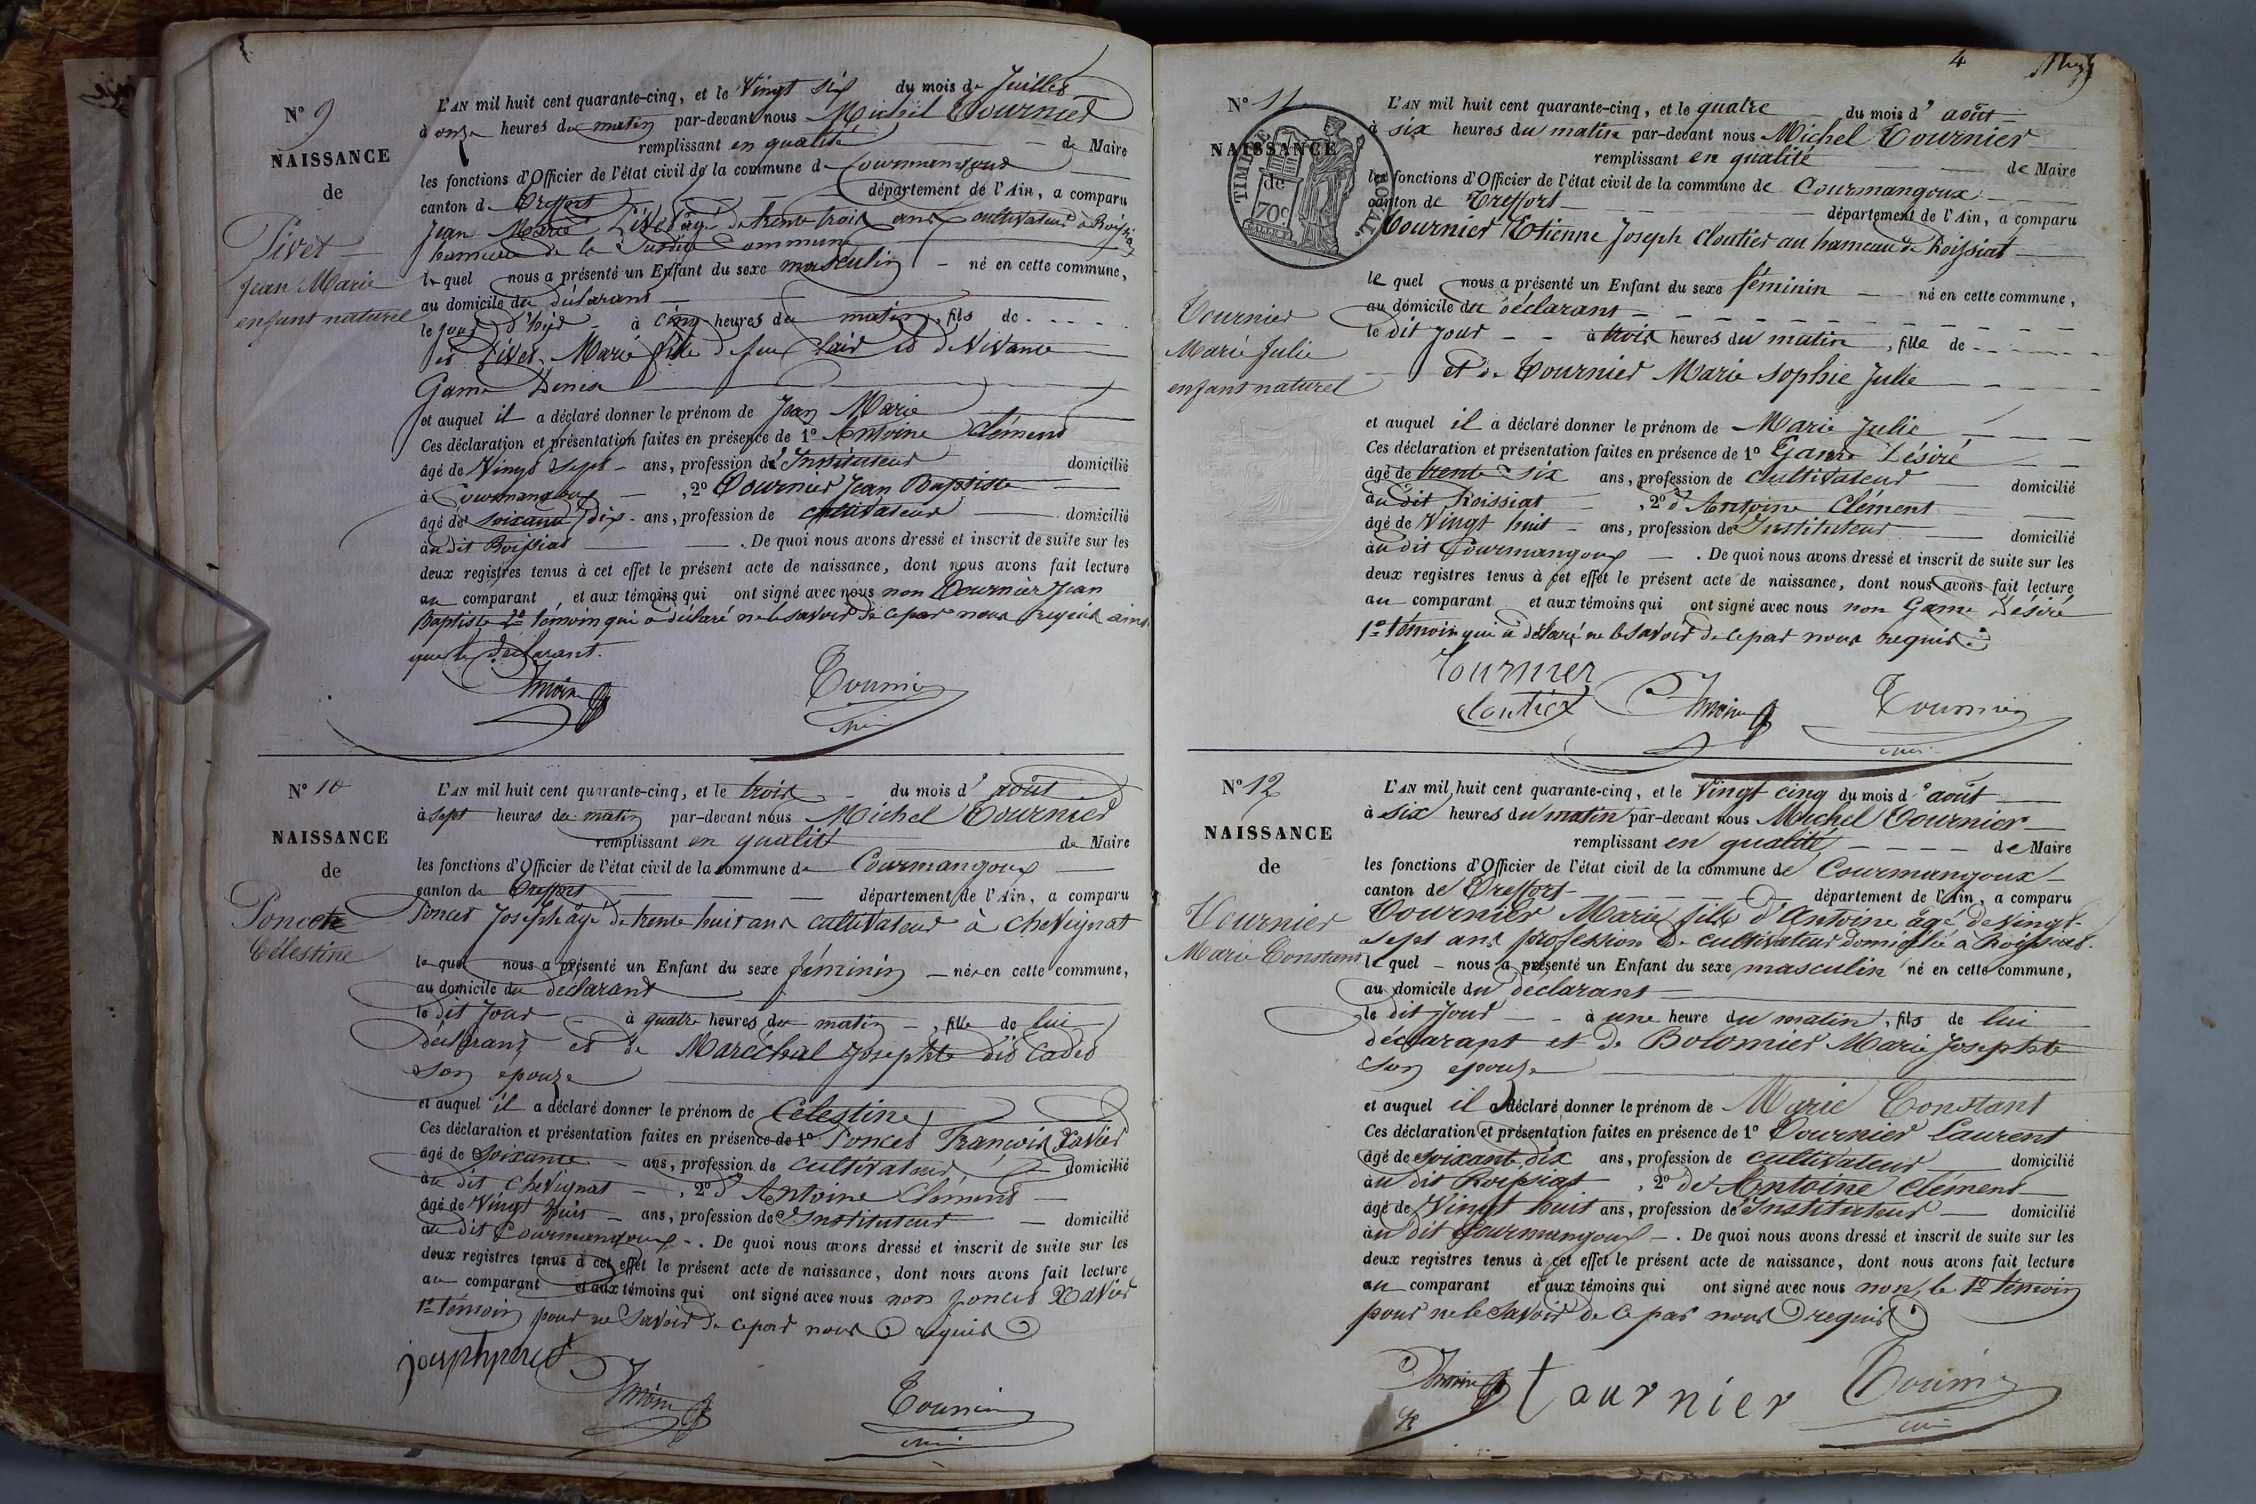 N° 9
NAISSANCE
de
Pivet
Jean Marie
enfant naturel
L'AN mil huit cent quarante-cinq, et le Vingt six du mois de Juillet
à onze heures du matin par-devant nous Michel Tournier
remplissant en qualité de Maire
les fonctions d'Officier de l'état civil de la commune de Courmangoux
canton de Treffort département de l'Ain, a comparu
Jean Marie Pivet âgé de trente trois ans cultivateur à Roissiat
hameau de la susdite Commune
le quel nous a présenté un Enfant du sexe masculin né en cette commune,
au domicile du déclarant
le jour d'hier à cinq heures du matin, fils de
et Pivet Marie fille de feu Clair et de vivante
Game Denise
et auquel il a déclaré donner le prénom de Jean Marie
Ces déclaration et présentation faites en présence de 1° Antoine Clément
âgé de Vingt sept ans, profession d'Instituteur domicilié
à Courmangoux, 2° Tournier Jean Baptiste
âgé de soixante dix ans, profession de cultivateur domicilié
au dit Roissiat. De quoi nous avons dressé et inscrit de suite sur les
deux registres tenus à cet effet le présent acte de naissance, dont nous avons fait lecture
au comparant, et aux témoins qui ont signé avec nous non Tournier Jean
Baptiste 2e témoin qui a déclaré ne le savoir de ce par nous requis ainsi
que le déclarant.
Antoine Tournier
N° 10
NAISSANCE
de
Poncet
Célestine
L'AN mil huit cent quarante-cinq, et le trois du mois d'août
à sept heures du matin par-devant nous Michel Tournier
remplissant en qualité de Maire
les fonctions d'Officier de l'état civil de la commune de Courmangoux
canton de Treffort département de l'Ain, a comparu
Poncet Joseph âgé de trente huit ans cultivateur à Chevignat
le quel nous a présenté un Enfant du sexe féminin née en cette commune,
au domicile du déclarant
le dit jour à quatre heures du matin, fille de lui
déclarant et de Maréchal Josephte dit Cadet
son epouze
et auquel il a déclaré donner le prénom de Célestine
Ces déclaration et présentation faites en présence de 1° Poncet François Xavier
âgé de soixante ans, profession de cultivateur domicilié
au dit Chevignat, 2° d'Antoine Clément
âgé de Vingt huit ans, profession de Instituteur domicilié
au dit Courmangoux. De quoi nous avons dressé et inscrit de suite sur les
deux registres tenus à cet effet le présent acte de naissance, dont nous avons fait lecture
au comparant et aux témoins qui ont signé avec nous non poncet Xavier
1er témoin pour ne savoir de ce par nous requis
joseph poncet
Antoine Tournier
4
N° 11
NAISSANCE
de
TIMBRE ROYAL.
70c
Tournier
Marie Julie
enfant naturel
L'AN mil huit cent quarante-cinq, et le quatre du mois d'août
à six heures du matin par-devant nous Michel Tournier
remplissant en qualité de Maire
les fonctions d'Officier de l'état civil de la commune de Courmangoux
canton de Treffort département de l'Ain, a comparu
Tournier Etienne Joseph Cloutier au hameau de Roissiat
le quel nous a présenté un Enfant du sexe féminin né en cette commune,
au domicile du déclarant
le dit jour à trois heures du matin, fille de
et de Tournier Marie Sophie Julie
et auquel il a déclaré donner le prénom de Marie Julie
Ces déclaration et présentation faites en présence de 1° Game Désiré
âgé de trente six ans, profession de Cultivateur domicilié
au dit Roissiat, 2° d'Antoine Clément
âgé de Vingt huit ans, profession de Instituteur domicilié
au dit Courmangoux. De quoi nous avons dressé et inscrit de suite sur les
deux registres tenus à cet effet le présent acte de naissance, dont nous avons fait lecture
au comparant et aux témoins qui ont signé avec nous non Game Désiré
1er témoin qui a déclaré ne le savoir de ce par nous requis.
Tournier
Cloutier Antoine Tournier
N° 12
NAISSANCE
de
Tournier
Marie Constant
L'AN mil huit cent quarante-cinq, et le Vingt cinq du mois d'août
à six heures du matin par-devant nous Michel Tournier
remplissant en qualité de Maire
les fonctions d'Officier de l'état civil de la commune de Courmangoux
canton de Treffort département de l'Ain, a comparu
Tournier Marie fils d'Antoine âgé de Vingt-
sept ans profession de cultivateur domicilié à Roissiat
le quel nous a présenté un Enfant du sexe masculin né en cette commune,
au domicile du déclarant
le dit jour à une heure du matin, fils de lui
déclarant et de Bolomier Marie Josephte
son epouze
et auquel il a déclaré donner le prénom de Marie Constant
Ces déclaration et présentation faites en présence de 1° Tournier Laurent
âgé de soixante dix ans, profession de cultivateur domicilié
au dit Roissiat, 2° de Antoine Clément
âgé de Vingt huit ans, profession de Instituteur domicilié
au dit Courmangoux. De quoi nous avons dressé et inscrit de suite sur les
deux registres tenus à cet effet le présent acte de naissance, dont nous avons fait lecture
au comparant et aux témoins qui ont signé avec nous non, le 1er témoin
pour ne le savoir de ce par nous requis
Antoine tournier Tournier